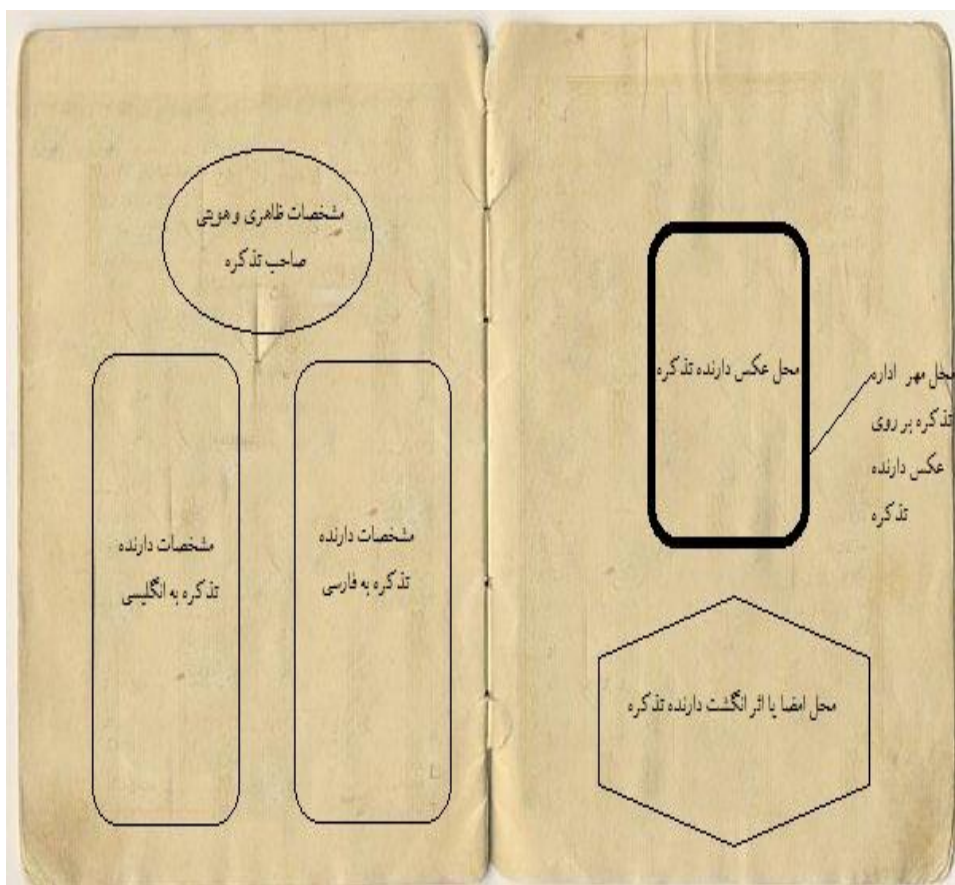 محل عکس دارنده تذکره
محل مهر اداره
تذکره بر روی
عکس دارنده
تذکره
محل امضا یا اثر انگشت دارنده تذکره
مشخصات ظاهری و هویتی
صاحب تذکره
مشخصات دارنده
تذکره به فارسی
مشخصات دارنده
تذکره به انگلیسی